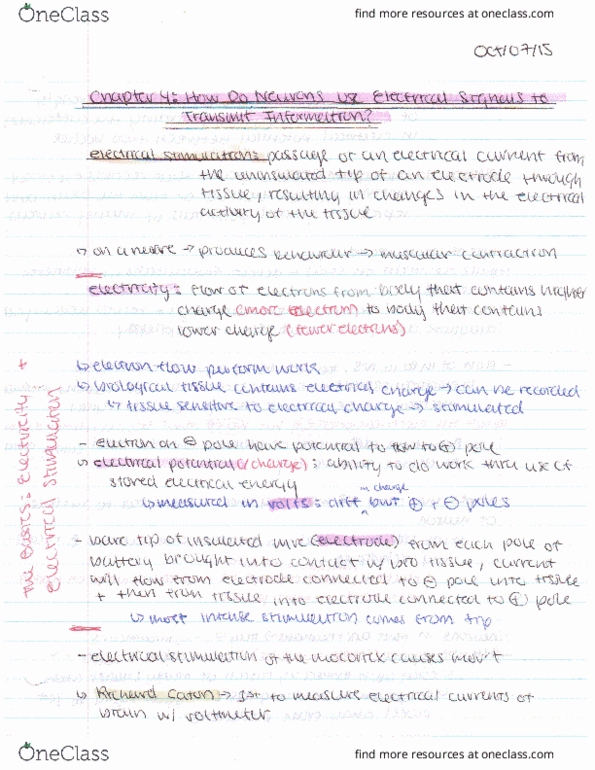 OneClass
find more resources at oneclass.com
Oct/07/15
Chapter 4: How Do Neurons use Electrical Signals to
Transmit Information?
electrical stimulation: passage of an electrical current from
the uninsulated tip of an electrode through
tissue, resulting in changes in the electrical
activity of the tissue
↳ on a nerve → produces behaviour → muscular contraction
electricity: flow of electrons from body that contains higher
charge (more electron) to body that contains
lower charge (fewer electrons)
The Basics: Electricity +
Electrical Stimulation
↳ electron flow perform work
↳ biological tissue contains electrical charge → can be recorded
↳ tissue sensitive to electrical charge → stimulated
- electron on ⊖ pole have potential to flow to ⊕ pole
↳ electrical potential (/charge): ability to do work thru use of
stored electrical energy
↳ measured in volts: diff in charge btwn ⊕ + ⊖ poles
- bare tip of insulated wire (electrode) from each pole of
battery brought into contact w/ bio tissue, current
will flow from electrode connected to ⊖ pole into tissue
+ then from tissue into electrode connected to ⊕ pole
↳ most intense stimulation comes from tip
- electrical stimulation of the neocortex causes mov't
↳ Richard Caton → 1st to measure electrical currents of
brain w/ voltmeter
OneClass
find more resources at oneclass.com